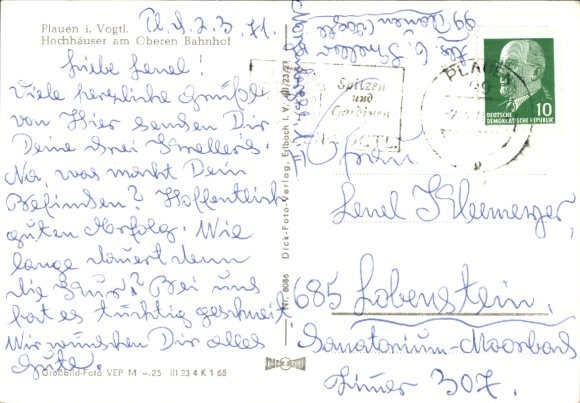 Plauen i. Vogtl.
Hochhäuser am Oberen Bahnhof
d. 2.3.71.
Liebe Lenel!
Viele herzliche Grüße
von Hier senden Dir
Deine drei
Na, was macht Dein
Befinden? Hoffentlich
guten Erfolg. Wie
lange dauert denn
die Kur? Bei uns
hat es tüchtig geschneit.
Wir wünschen Dir alles
Gute.
GroßBild-Foto VEP M -.25 III 23 4 K 1 68
Nr. 8086 Dick-Foto-Verlag, Erlbach i. V. III/23/27
99 Plauen
PLAUEN
99
Spitzen
und
Gardinen
10
DEUTSCHE
DEMOKRATISCHE REPUBLIK
Frau
Lenel Kleemerzer,
685 Lobenstein.
Sanatorium-Moorbad
Zimer 307.